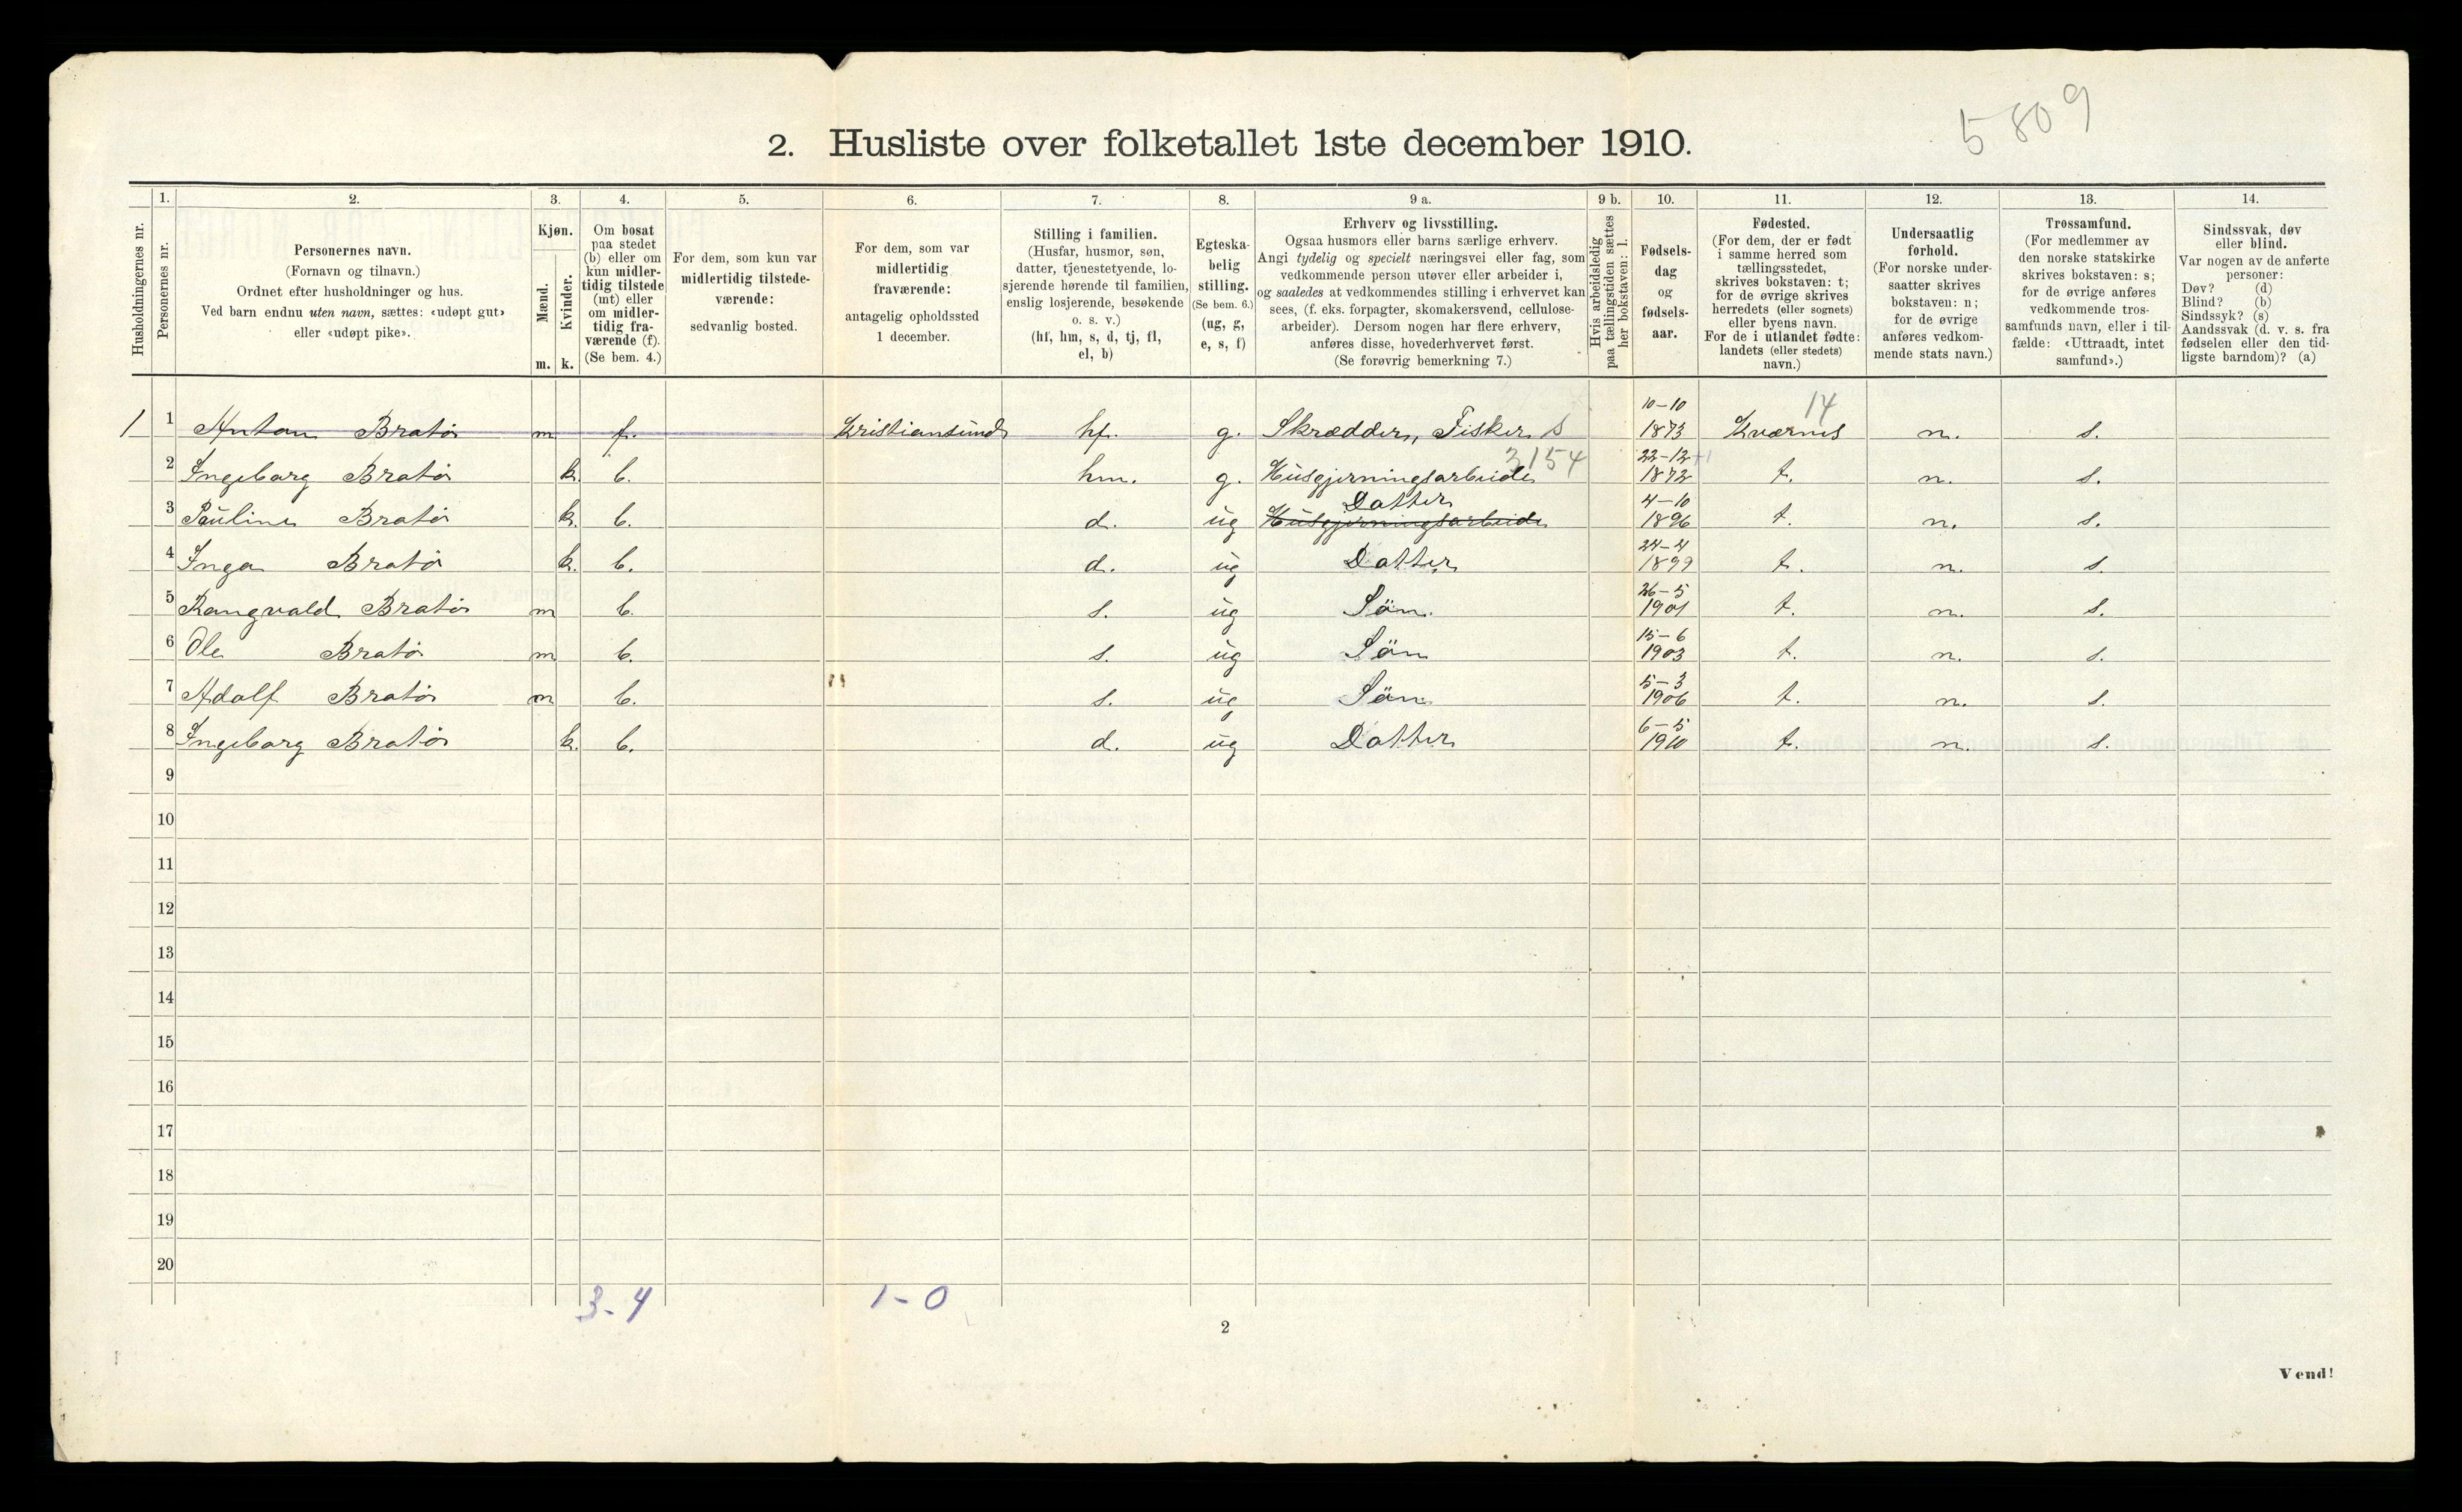 5809
2. Husliste over folketallet 1ste december 1910.
Husholdningernes nr.
1.
Personernes nr.
2.
Personernes navn.
(Fornavn og tilnavn.)
Ordnet efter husholdninger og hus.
Ved barn endnu uten navn, sættes: «udøpt gut»
eller «udøpt pike».
3.
Kjøn.
Mænd.
Kvinder.
m. k.
4.
Om bosat
paa stedet
(b) eller om
kun midler-
tidig tilstede
(mt) eller
om midler-
tidig fra-
værende (f).
(Se bem. 4.)
5.
For dem, som kun var
midlertidig tilstede-
værende:
sedvanlig bosted.
6.
For dem, som var
midlertidig
fraværende:
antagelig opholdssted
1 december.
7.
Stilling i familien.
(Husfar, husmor, søn,
datter, tjenestetyende, lo-
sjerende hørende til familien,
enslig losjerende, besøkende
o. s. v.)
(hf, hm, s, d, tj, fl,
el, b)
8.
Egteska-
belig
stilling.
(Se bem. 6.)
(ug, g,
e, s, f)
9 a.
Erhverv og livsstilling.
Ogsaa husmors eller barns særlige erhverv.
Angi tydelig og specielt næringsvei eller fag, som
vedkommende person utøver eller arbeider i,
og saaledes at vedkommendes stilling i erhvervet kan
sees, (f. eks. forpagter, skomakersvend, cellulose-
arbeider). Dersom nogen har flere erhverv,
anføres disse, hovederhvervet først.
(Se forøvrig bemerkning 7.)
9 b.
Hvis arbeidsledig
paa tællingstiden sættes
her bokstaven: l.
10.
Fødsels-
dag
og
fødsels-
aar.
11.
Fødested.
(For dem, der er født
i samme herred som
tællingsstedet,
skrives bokstaven: t;
for de øvrige skrives
herredets (eller sognets)
eller byens navn.
For de i utlandet fødte:
landets (eller stedets)
navn.)
12.
Undersaatlig
forhold.
(For norske under-
saatter skrives
bokstaven: n;
for de øvrige
anføres vedkom-
mende stats navn.)
13.
Trossamfund.
(For medlemmer av
den norske statskirke
skrives bokstaven: s;
for de øvrige anføres
vedkommende tros-
samfunds navn, eller i til-
fælde: «Uttraadt, intet
samfund».)
14.
Sindssvak, døv
eller blind.
Var nogen av de anførte
personer:
Døv? (d)
Blind? (b)
Sindssyk? (s)
Aandssvak (d. v. s. fra
fødselen eller den tid-
ligste barndom)? (a)
1 1 Anton Bratør m f. Kristiansund hf. g. Skrædder, Fisker s 10-10 1873 Kværnes 14 n. s.
2 Ingeborg Bratør k. b. hm. g. Husgjerningsarbeide 3154 22-12 1872 t. n. s.
3 Pauline Bratør k. b. d. ug Datter Husgjerningsarbeide 4-10 1896 t. n. s.
4 Inga Bratør k. b. d. ug Datter 24-4 1899 t. n. s.
5 Rangvald Bratør m b. s. ug Sön 26-5 1901 t. n. s.
6 Ole Bratør m b. s. ug Sön 15-6 1903 t. n. s.
7 Adolf Bratør m b. s. ug Sön 5-3 1906 t. n. s.
8 Ingeborg Bratør k. b. d. ug Datter 6-5 1910 t. n. s.
9
10
11
12
13
14
15
16
17
18
19
20
3-4 1-0
2
Vend!